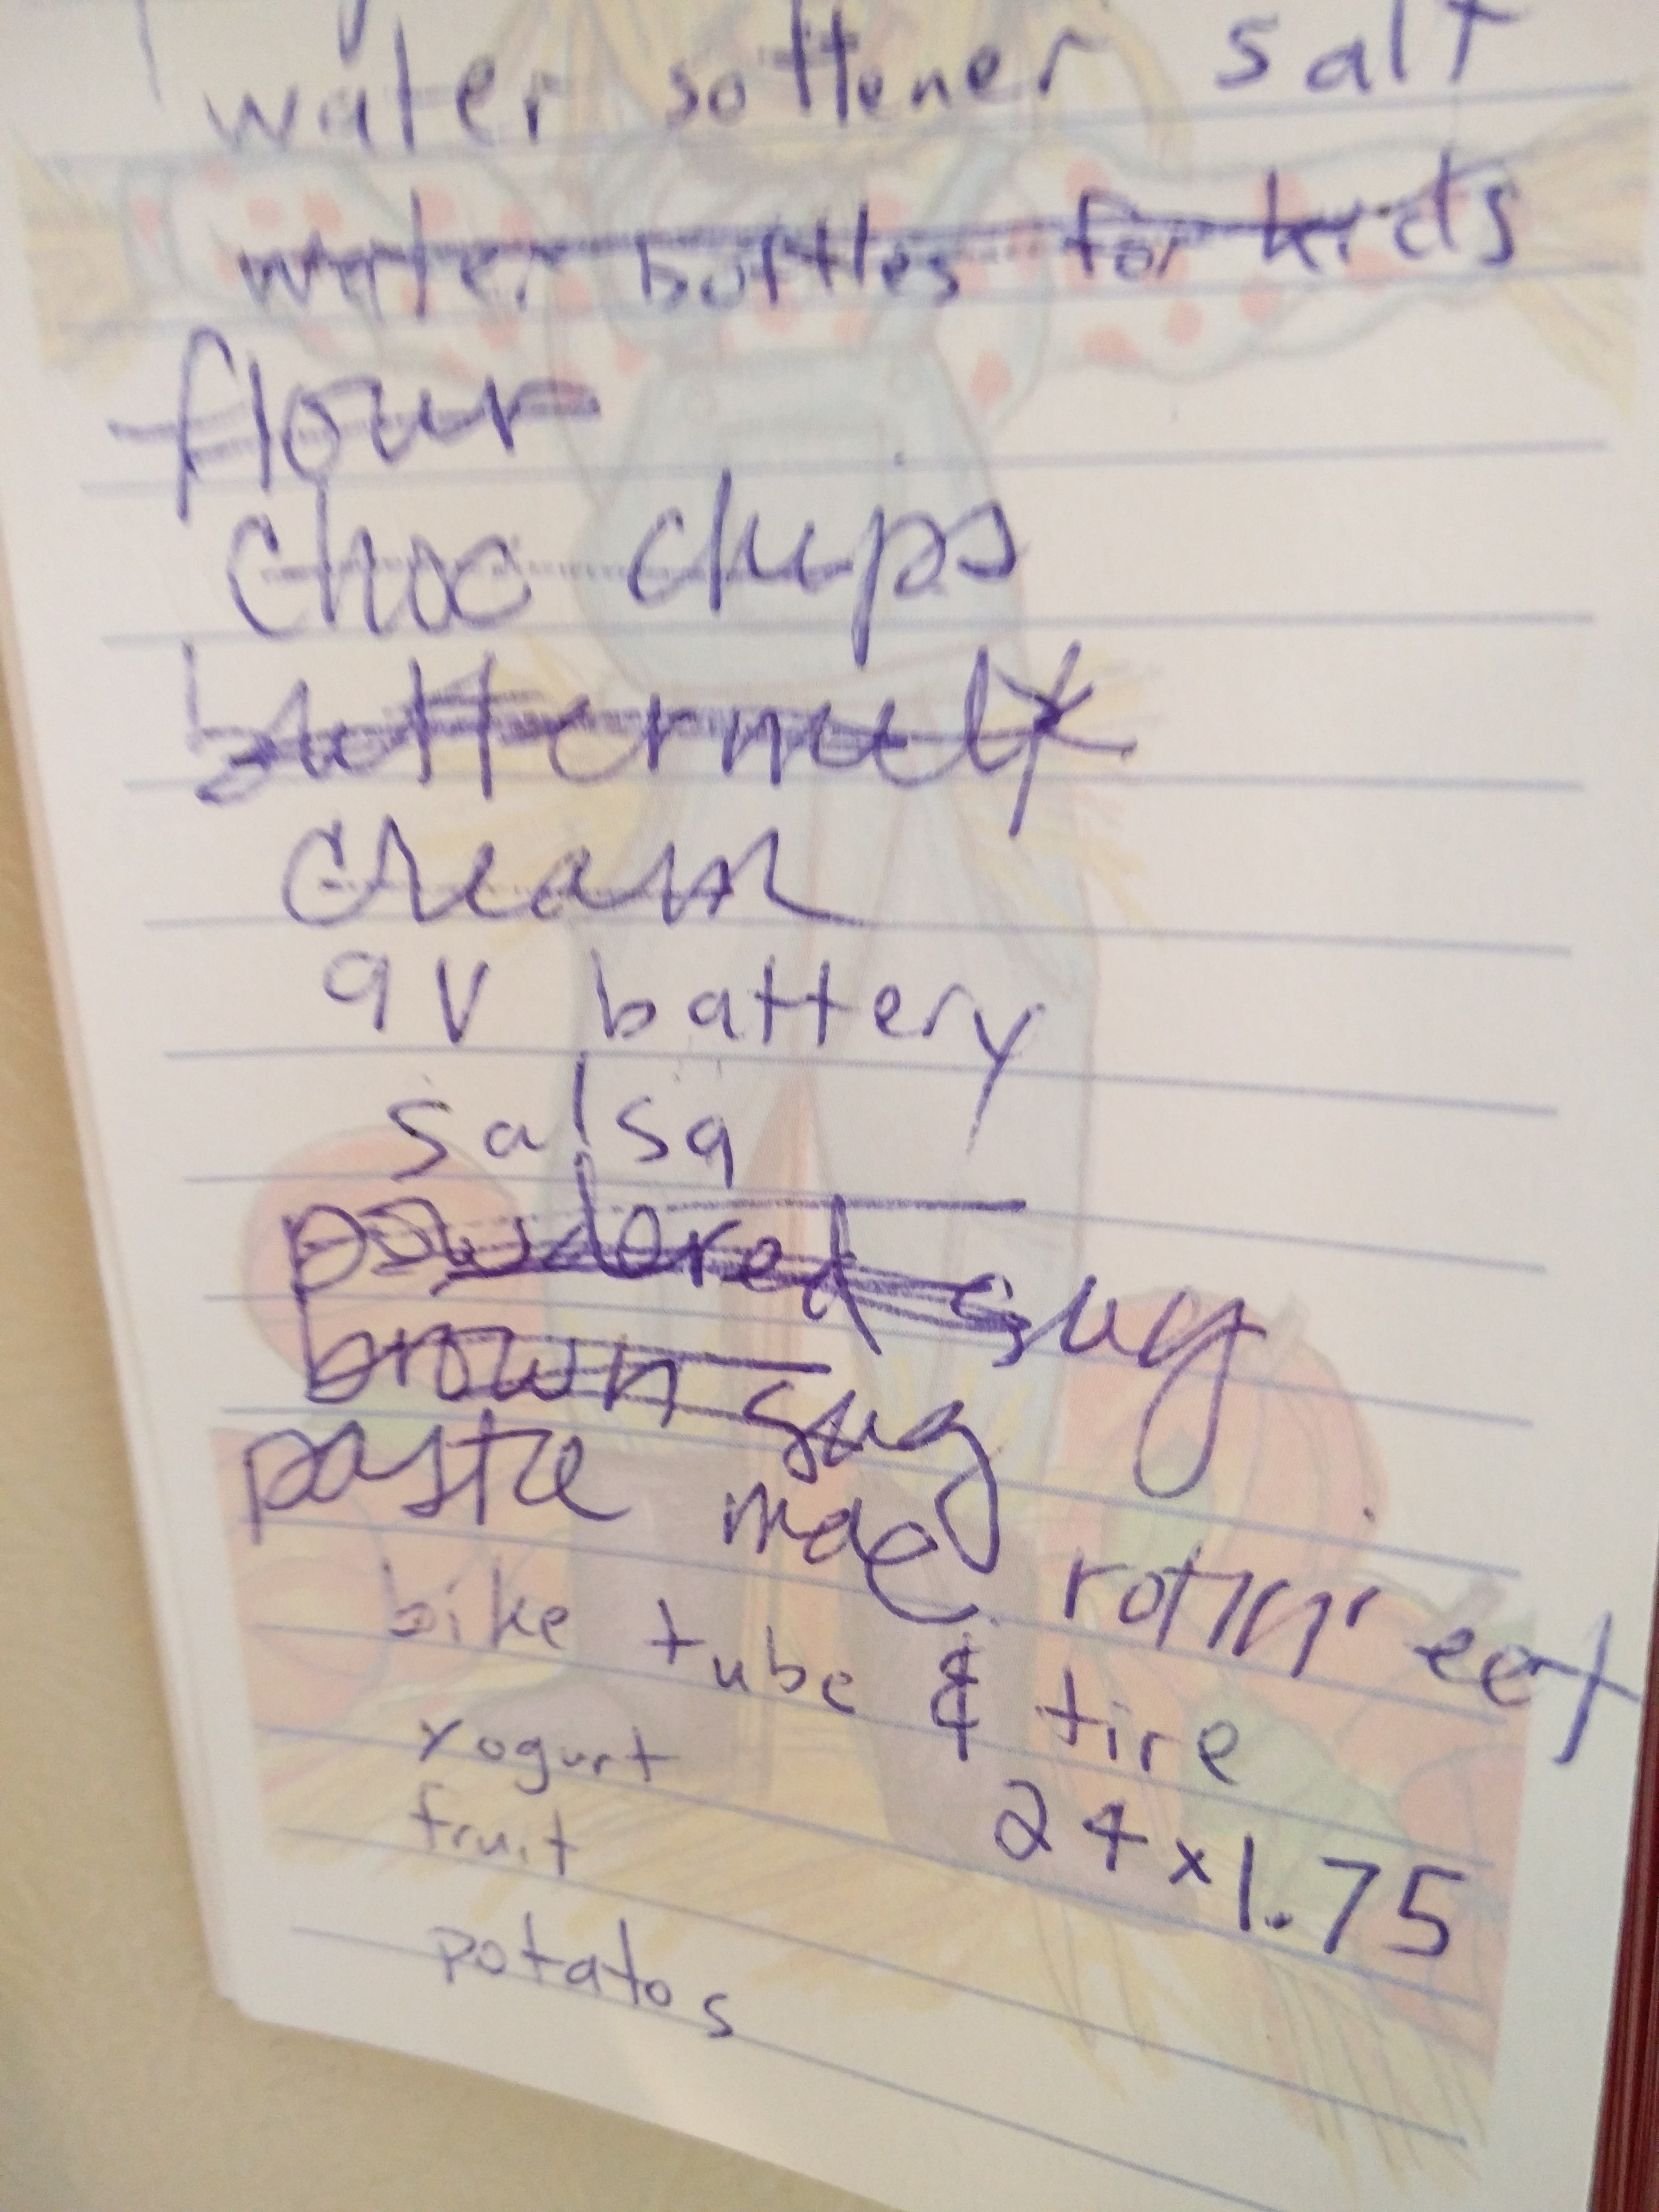 water softener salt
water bottles for kids
flour
choc chips
buttermilk
cream
9V battery
salsa
powdered sug
brown sug
paste mac rotini
bike tube & tire
yogurt
24x1.75
fruit
potatos